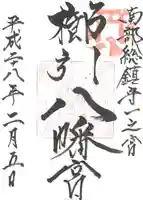 南部総鎮守一之宮
櫛引八幡宮
平成二八年二月五日